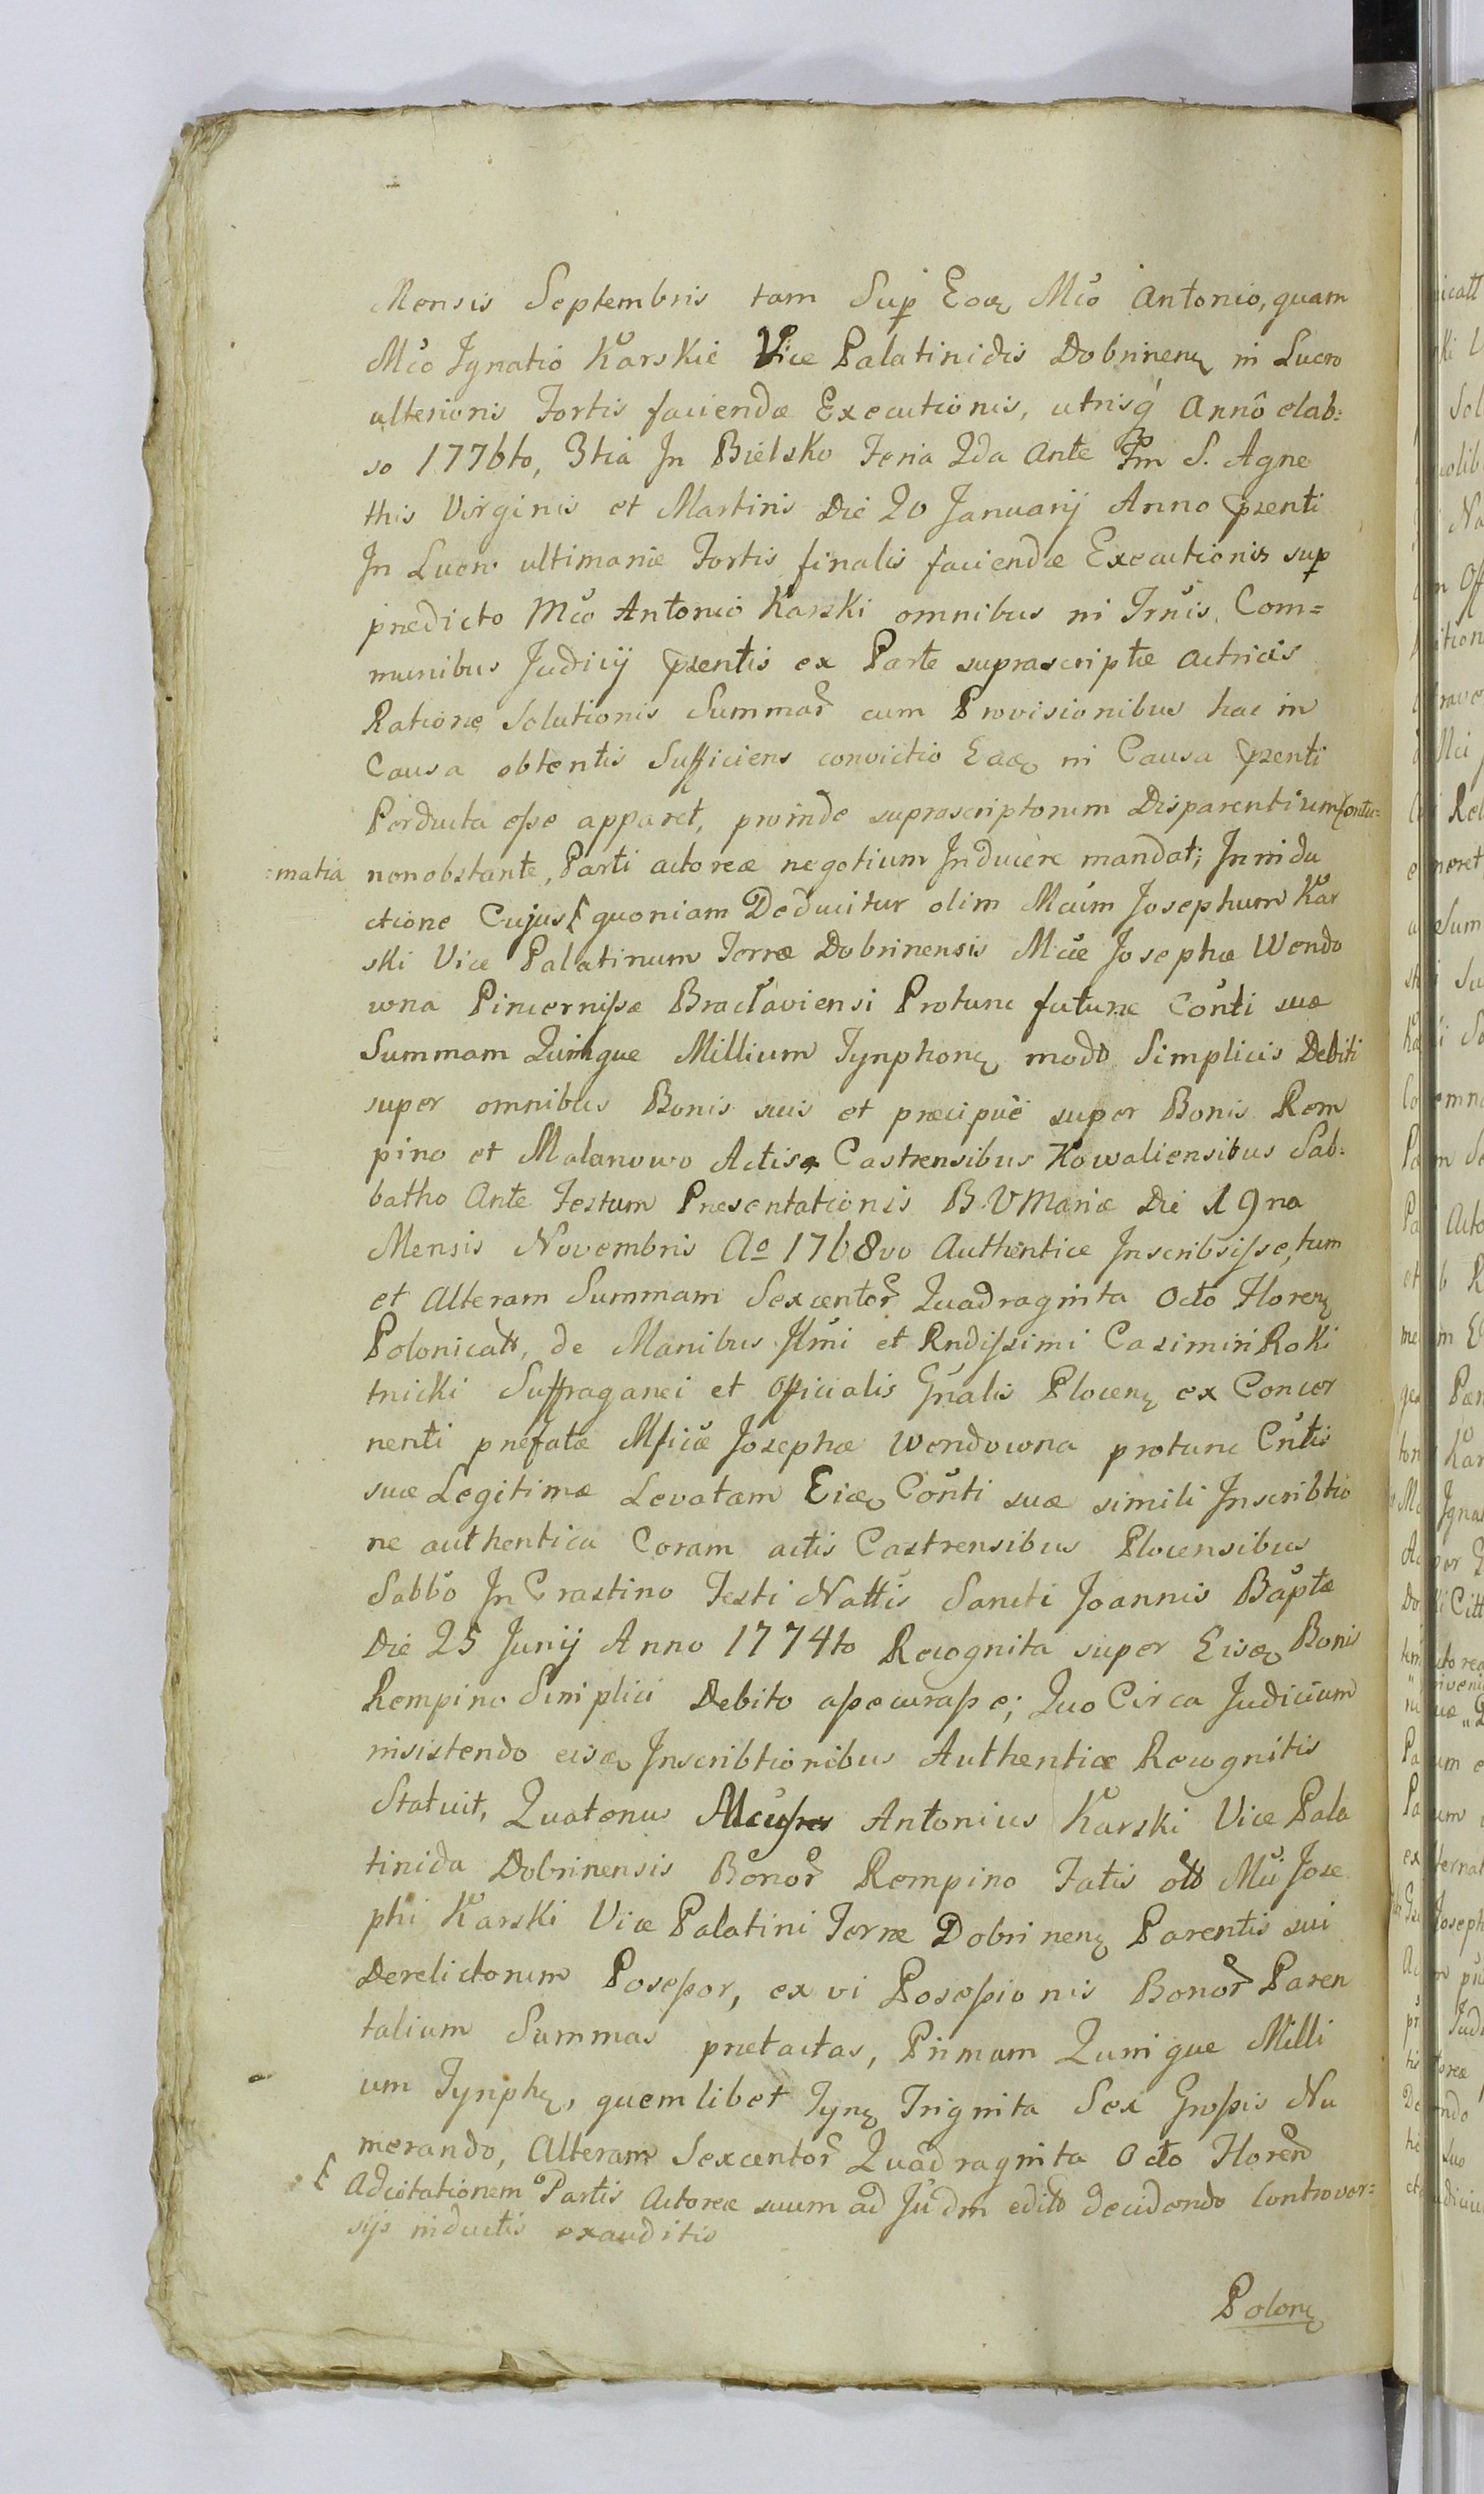 Mensis Septembris tam Sup Eoq Mco Antonio, quam
Mco Ignatio Karskie Vice Palatinidis Dobrinenq in Lucro
ulterioris Fortis faciendæ Executionis, utrisq Anno elab=
so 1776to, 3tia In Bielsko Feria 2da Ante Fm S. Agne
this Virginis et Martiris Die 20 Januarij Anno przenti
In Lucro ultimariæ Fortis finalis faciendæ Executionis sup
prædicto Mco Antonio Karski omnibus in Trnis Com=
munibus Judicij przentis ex Parte suprascriptæ actricis
Ratione Solutionis Summar cum Provisionibus hac in
Causa obtentis Sufficiens convictio Eaq in Causa przenti
Perducta esse apparet, proinde suprascriptorum Disparentium Contu=
=matia nonobstante, Parti actoreæ negotium Inducere mandat; In indu
ctione Cujus £ quoniam Deducitur olim Mcum Josephum Kar
ski Vice Palatinum Terræ Dobrinensis Mcæ Josephæ Wendo
wna Pincernissæ Bracłaviensi Protunc futuræ Conti suæ
Summam Quinque Millium Tynphonq modo Simplicis Debiti
super omnibus Bonis suis et præcipue super Bonis Rem
pino et Malanowo Actisq Castrensibus Kowaliensibus Sab=
batho Ante Festum Præsentationis B. V Mariæ Die 19na
Mensis Novembris Ao 1768vo Authentice Inscribsisse, tum
et Alteram Summam Sexcentor Quadraginta Octo Florenq
Polonicatt, de Manibus Ilmi et Rndissimi Casimiri Roki
tnicki Suffraganei et Officialis Gnalis Plocenq ex Concer
nenti præfatæ Mficæ Josephæ Wendowna protunc Cntis
suæ Legitimæ Levatam Eiæq Conti suæ simili Inscribtio
ne authentica Coram actis Castrensibus Plocensibus
Sabbo In Crastino Festi Nattis Sancti Joannis Baptæ
Die 25 Junij Anno 1774to Recognita super Eisq Bonis
Rempino Simplici Debito assecurasse; Quo Circa Judicium
insistendo eisq Inscribtionibus Authentice Recognitis
Statuit, Quatenus Antonius Karski Vice Pala
tinida Dobrinensis Bonor Rempino Fatis ott Mci Jose
phi Karski Vice Palatini Terræ Dobrinenq Parentis sui
Derelictorum Possessor, ex vi Possessionis Bonor Paren
talium Summas prætactas, Primam Quinque Milli
um Tynphq, quemlibet Tynq Triginta Sex Grossis Nu
merando, Alteram Sexcentor Quadraginta Octo Floren
£ Adcitationem Partis Actoreæ suum ad Judm edito decidendo Controver=
sijs inductis exauditis
Polonq